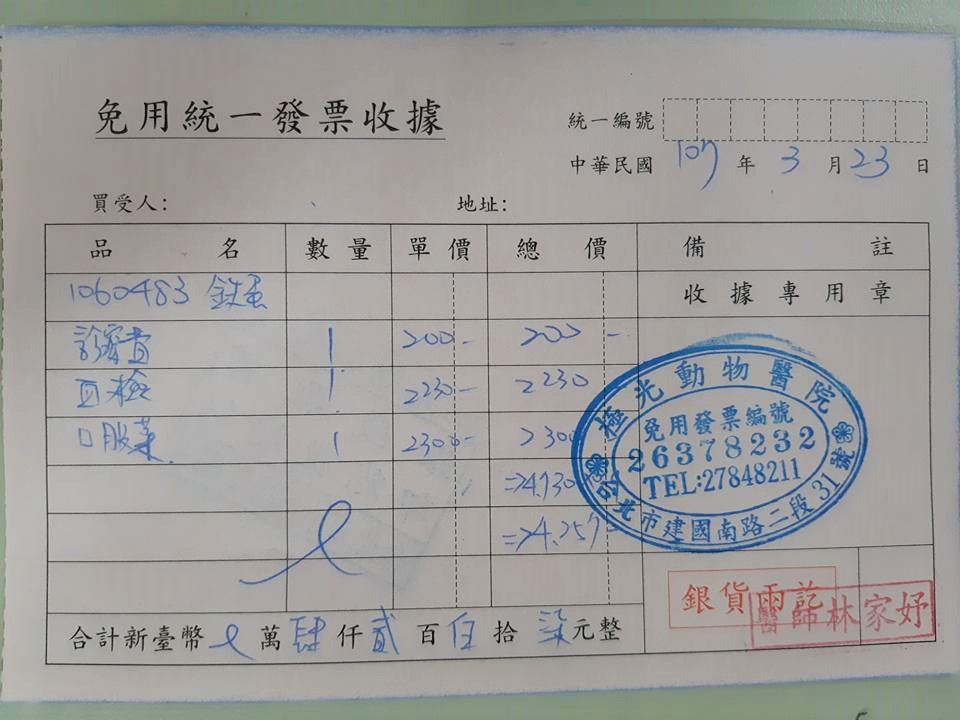 免用統一發票收據
統一編號
中華民國 107 年 3 月 23 日
買受人: 地址:
品名 數量 單價 總價 備註
1060483 鉄蛋 收據專用章
診察費 1 200- 200-
血檢 1 2230- 2230
口服薬 1 2300- 2300
=>4,730
=>4,257
極光動物醫院
免用發票編號
26378232
TEL:27848211
台北市建國南路二段31號
銀貨兩訖
醫師林家妤
合計新臺幣 萬肆仟貳百伍拾柒元整